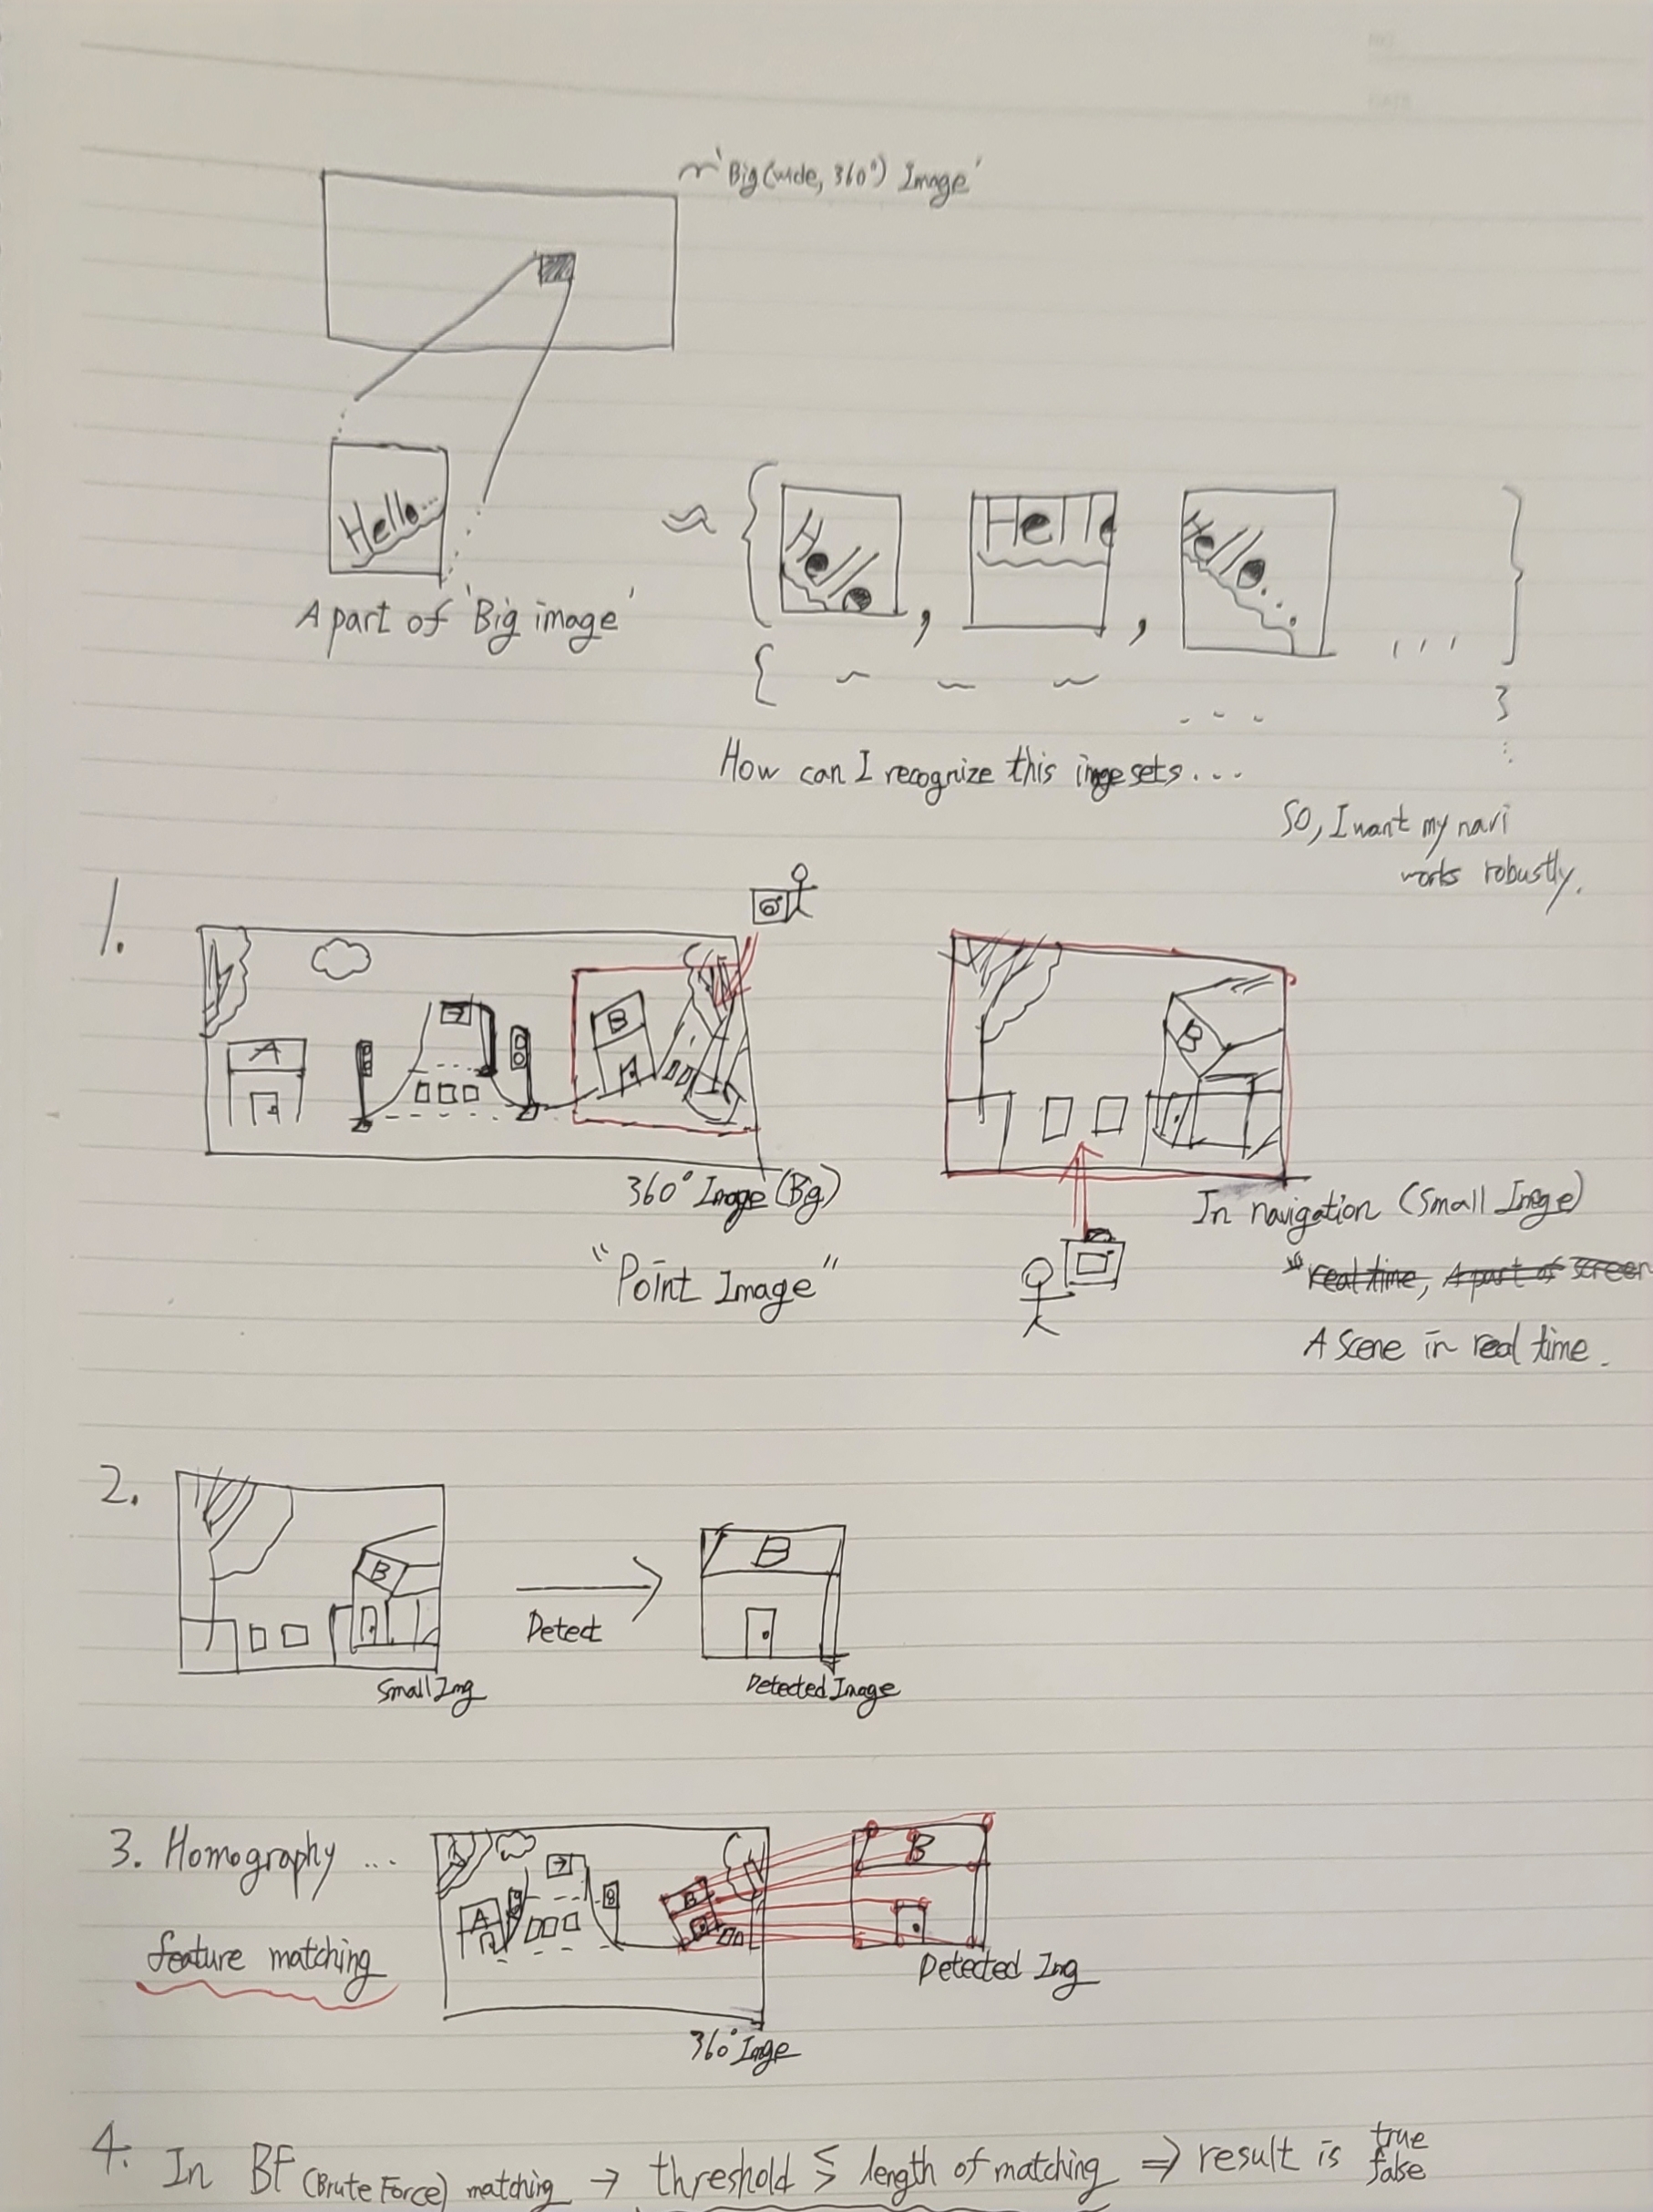 'Big (wide, 360°) Image'
Hello...
Hello
Hello
Hello...
A part of 'Big image'
How can I recognize this image sets...
So, I want my navi
works robustly.
1.
A
B
B
360° Image (Big)
In navigation (Small Image)
"Point Image"
real time, A part of screen
A scene in real time.
2.
B
B
Detect
Small Img
Detected Image
3. Homography ...
A
B
B
feature matching
Detected Img
360° Image
4. In BF (Brute Force) matching → threshold ≶ length of matching ⇒ result is true
false